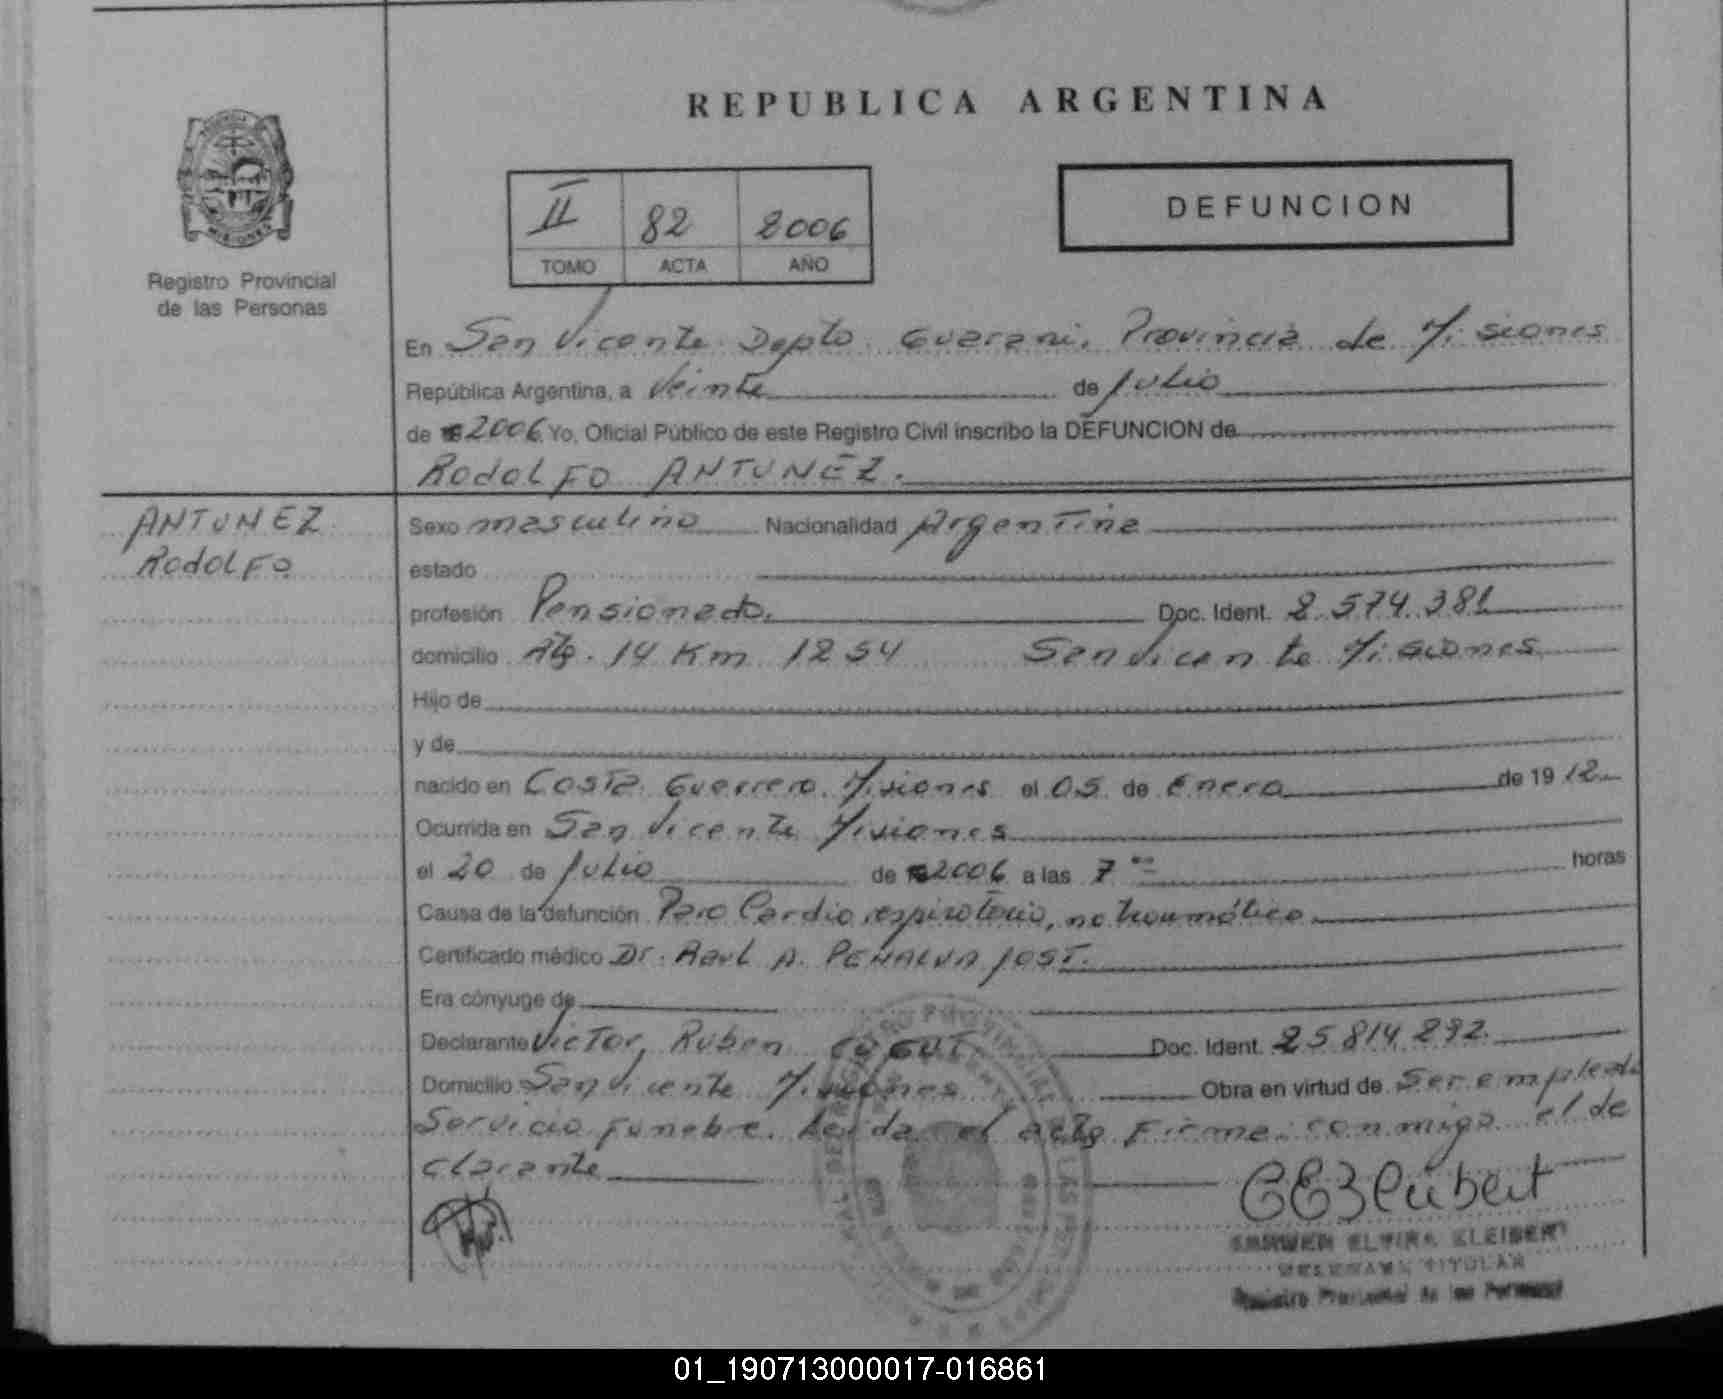 REPUBLICA ARGENTINA
II 82 2006
TOMO ACTA AÑO
DEFUNCION
MISIONES
Registro Provincial
de las Personas
En San Vicente Depto Guarani, Provincia de Misiones
República Argentina, a Veinte de Julio
de 2006 Yo, Oficial Público de este Registro Civil inscribo la DEFUNCION de
RODOLFO ANTUNEZ.
ANTUNEZ
RODOLFO
Sexo masculino Nacionalidad Argentina
estado
profesión Pensionado. Doc. Ident. 2.574.381
domicilio 14 Km 1254 San Vicente Misiones
Hijo de
y de
nacido en Costa Guerrero Misiones el 05 de Enero de 19 12
Ocurrida en San Vicente Misiones
el 20 de Julio de 2006 a las 7 horas
Causa de la defunción Paro Cardio respiratorio, no traumático
Certificado médico Dr. Raul A. PENALVA JOST.
Era cónyuge de
Declarante Victor Ruben Doc. Ident. 25.814.292
Domicilio San Vicente Misiones Obra en virtud de Ser empleado
Servicio Funebre. Leida el acta Firma conmigo el de
clarante
CARMEN ELVIRA KLEIBERT
TITULAR
Registro Provincial de las Personas
01_190713000017-016861